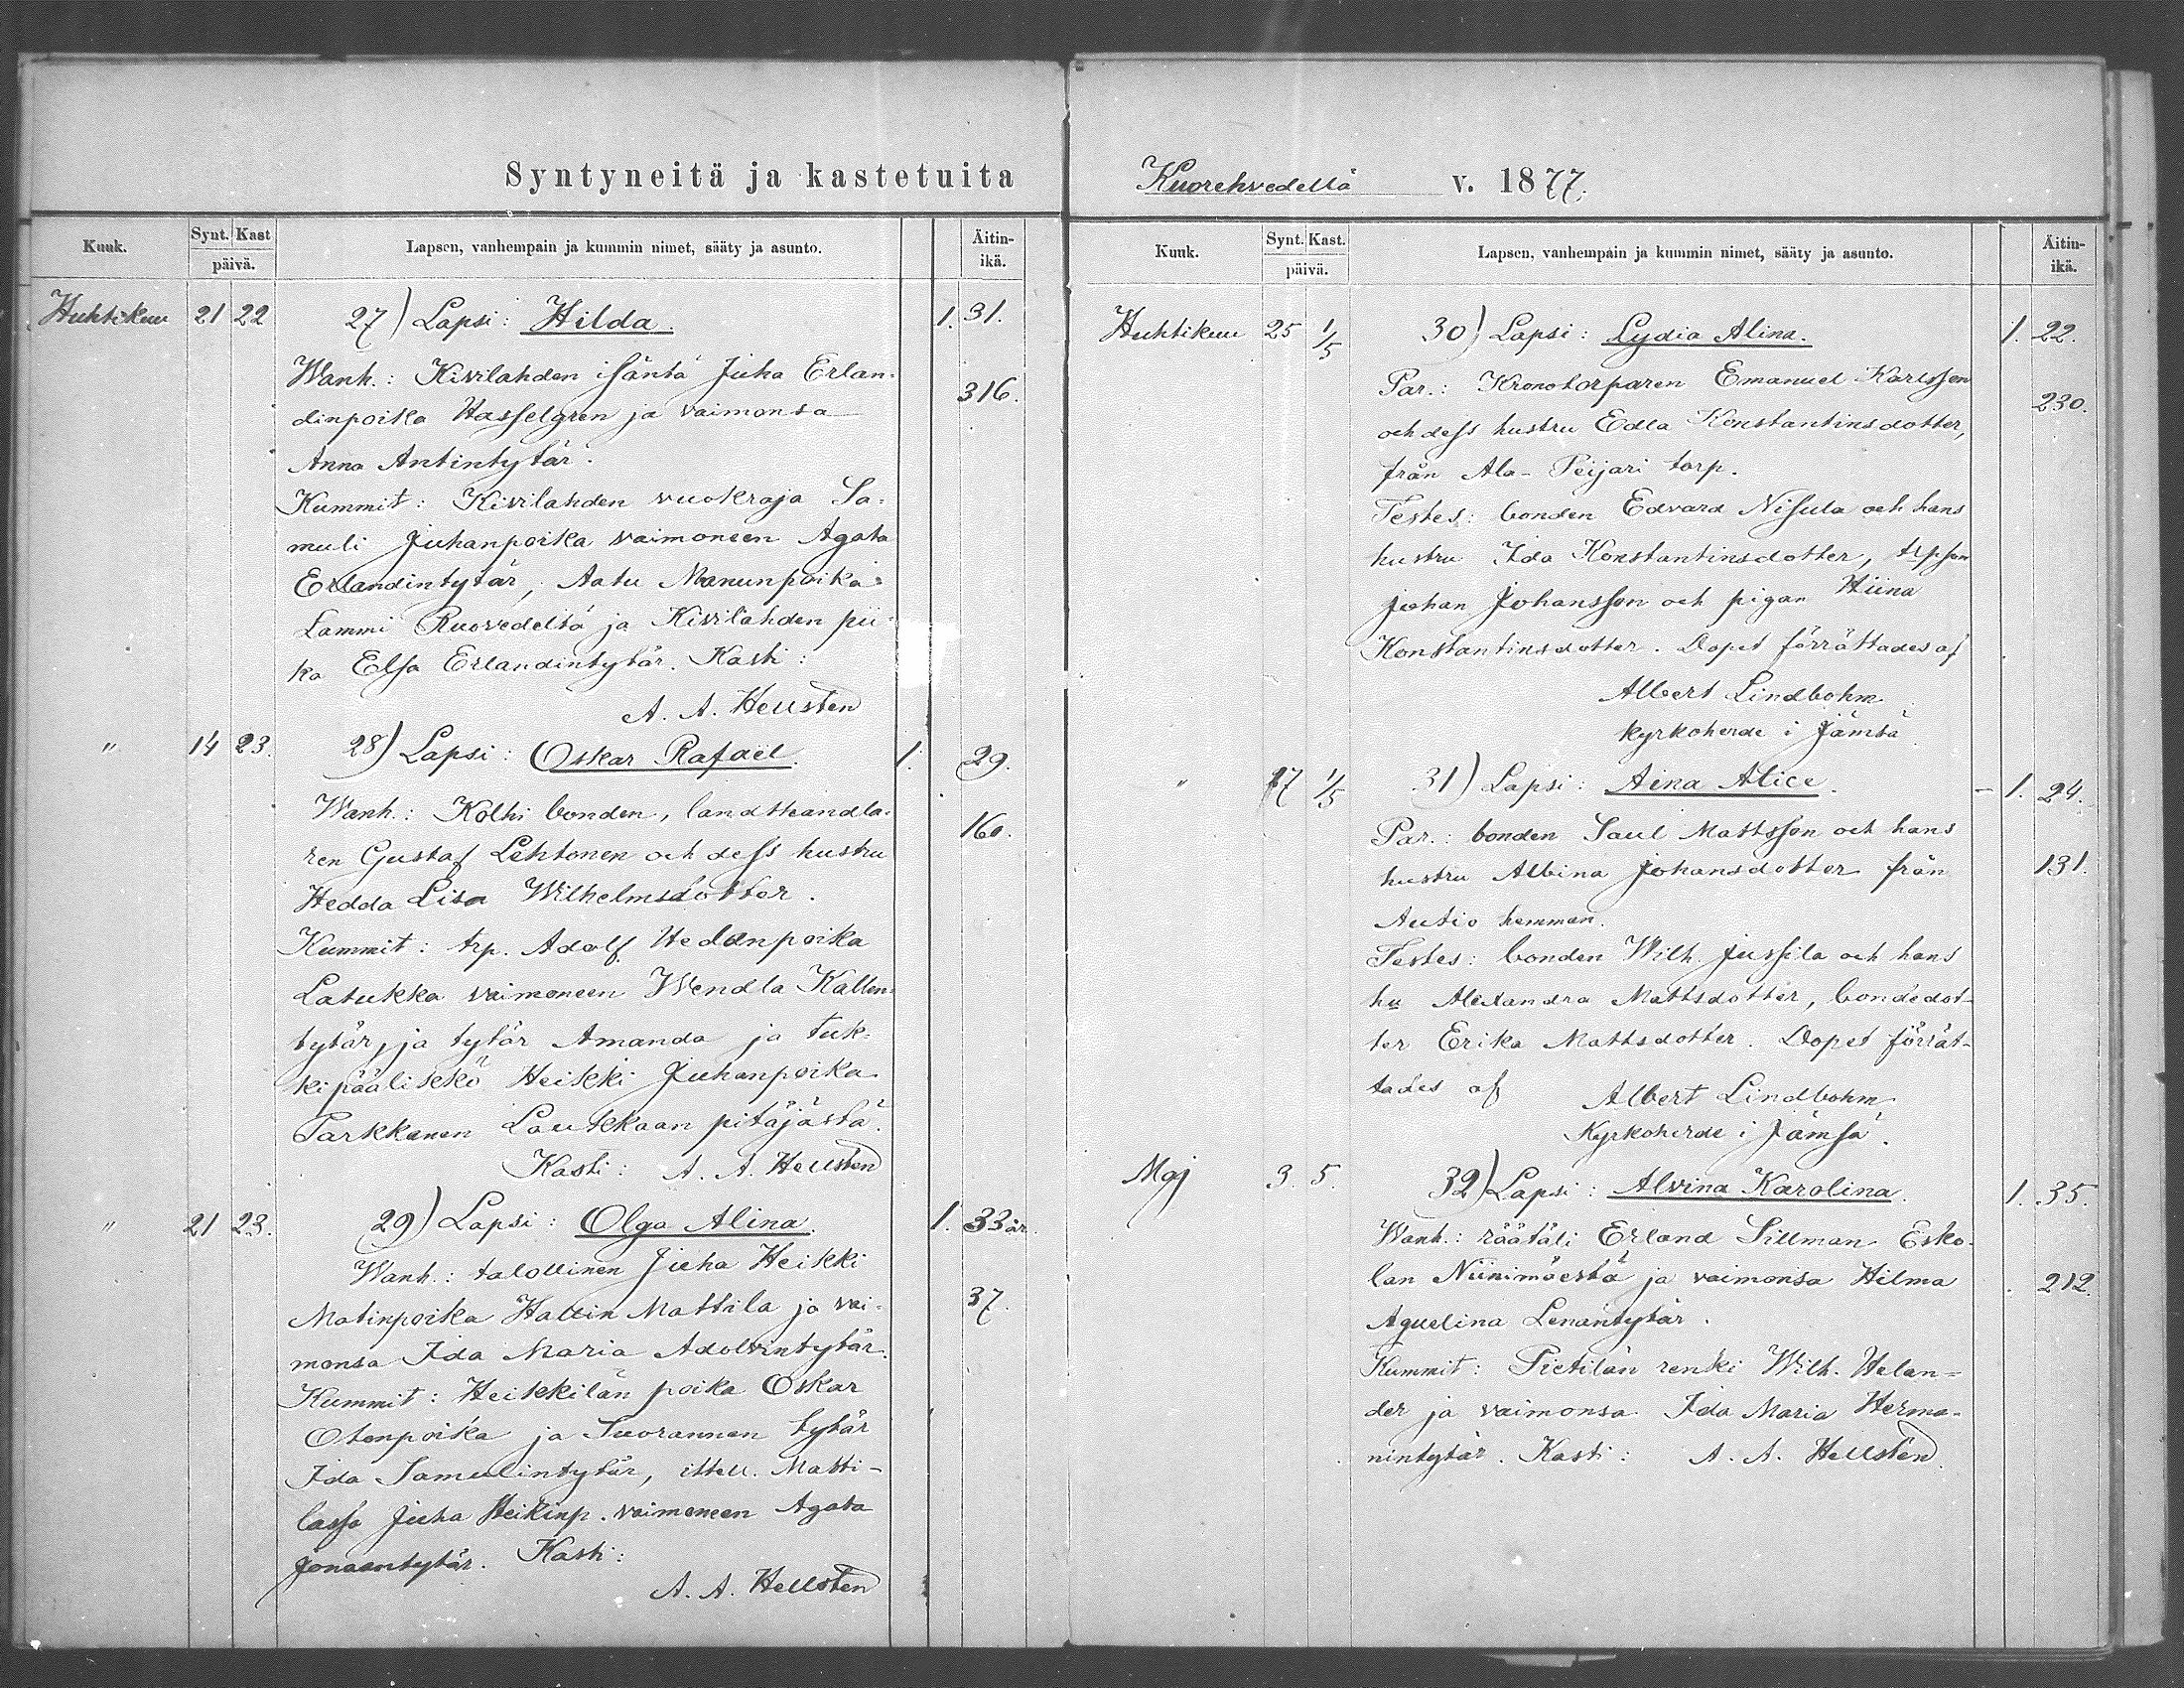 Syntyneitä ja kastetuita
Kuuk.
Synt. Kast
päivä.
Lapsen, vanhempain ja kummin nimet, sääty ja asunto.
Äitin-
ikä.
Huhtikuu 21 22 27) Lapsi: Hilda. 1. 31.
Wanh.: Kivilahden isäntä Juha Erlan-
316.
dinpoika Hasselgren ja vaimonsa
Anna Antintytär.
Kummit: Kivilahden vuokraja Sa-
muli Juhanpoika vaimoneen Agata
Erlandintytär, Aatu Manunpoika
Lammi Ruovedeltä ja Kivilahden pii-
ka Elsa Erlandintytär. Kasti:
A. A. Hellsten
" 14 23. 28) Lapsi: Oskar Rafael. 1. 29.
Wanh.: Kolhi bonden, landthandla-
160.
ren Gustaf Lehtonen och dess hustru
Hedda Lisa Wilhelmsdotter.
Kummit: trp. Adolf Hedanpoika
Latukka vaimoneen Wendla Kallen-
tytär, ja tytär Amanda ja tuk-
kipäälikkö Heikki Juhanpoika
Parkkanen Laukkaan pitäjästä.
Kasti: A. A. Hellsten
" 21 23. 29) Lapsi: Olga Alina. 1. 33 år.
Wanh.: talollinen Juha Heikki
Matinpoika Hallin Mattila ja vai-
37.
monsa Ida Maria Adolvintytär.
Kummit: Heikkilän poika Oskar
Otonpoika ja Suorannan tytär
Ida Samulintytär, itsell. Matti-
lassa Juha Heikinp. vaimoneen Agata
Jonaantytär. Kasti:
A. A. Hellsten
Kuorehvedellä v. 1877.
Kuuk.
Synt. Kast.
päivä.
Lapsen, vanhempain ja kummin nimet, sääty ja asunto.
Äitin-
ikä.
Huhtikuu 25 1/5 30) Lapsi: Lydia Alina. 1. 22.
Par.: Kronotorparen Emanuel Karlsson
230.
och dess hustru Edla Konstantinsdotter,
från Ala-Peijari torp.
Testes: bonden Edvard Nisula och hans
hustru Ida Konstantinsdotter, trpson
Johan Johansson och pigan Hiina
Konstantinsdotter. Dopet förrättades af
Albert Lindbohm
kyrkoherde i Jämsä
" 17 1/5 31) Lapsi: Aina Alice. - 1. 24.
Par.: bonden Saul Mattsson och hans
hustru Albina Johansdotter från
131.
Autio hemman.
Testes: bonden Wilh. Jussila och hans
hu Alexandra Mattsdotter, bondedot-
ter Erika Mattsdotter. Dopet förrät-
tades af Albert Lindbohm
Kyrkoherde i Jämsä.
Maj 3. 5. 32) Lapsi: Alvina Karolina. 1. 35.
Wanh.: räätäli Erland Sillman Esko-
lan Niinimäestä ja vaimonsa Hilma
212.
Aquelina Lenantytär.
Kummit: Pietilän renki Wilh. Helan-
der ja vaimonsa Ida Maria Herma-
nintytär. Kasti: A. A. Hellsten